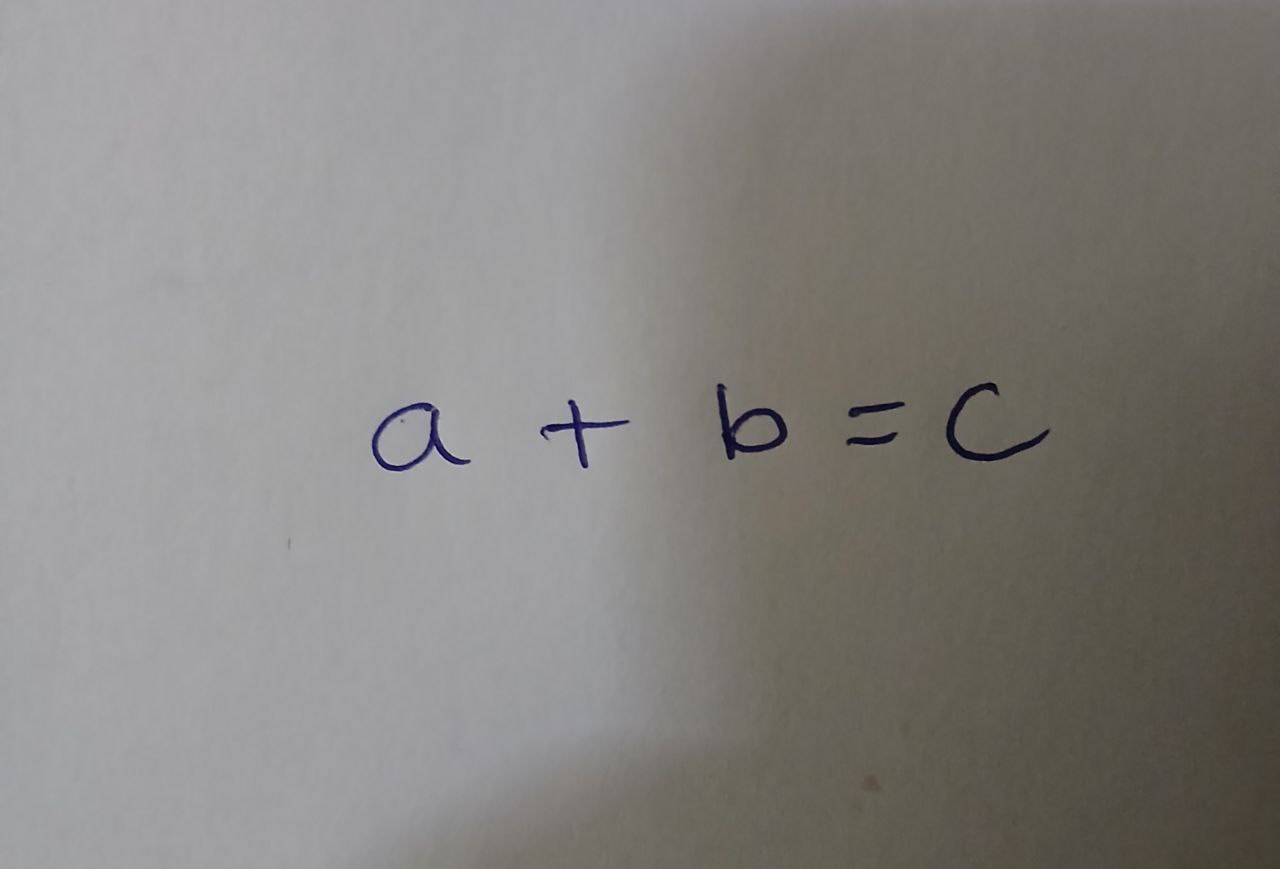 a + b = c